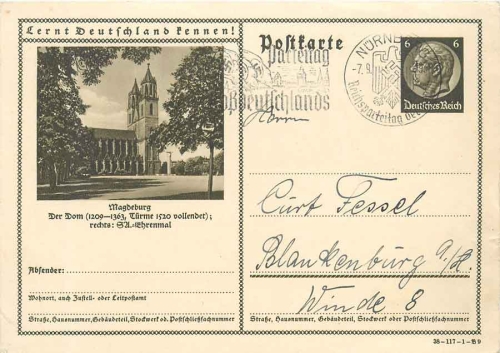 Lernt Deutschland kennen!
Magdeburg
Der Dom (1209—1363, Türme 1520 vollendet);
rechts: SA.-Ehrenmal
Absender:
Wohnort, auch Zustell- oder Leitpostamt
Straße, Hausnummer, Gebäudeteil, Stockwerk od. Postschließfachnummer
Postkarte
Parteitag
Großdeutschlands
NÜRNBERG
-7.9.
Reichsparteitag der
6 6
Deutsches Reich
Herrn
Curt Fessel
Blankenburg a/H.
Winde 8
Straße, Hausnummer, Gebäudeteil, Stockwerk oder Postschließfachnummer
38-117-1-B9